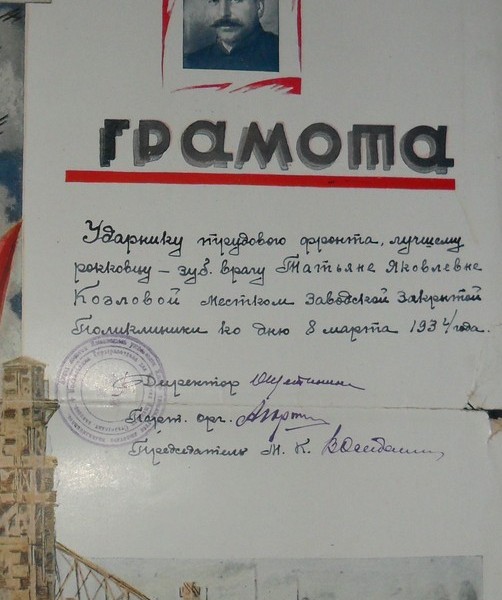 грамота
Ударнику трудового фронта, лучшему
рокковцу – зуб. врачу Татьяне Яковлевне
Козловой местком Заводской Закрытой
Поликлиники ко дню 8 марта 1934 года.
Директор
Парт. орг.
Председатель М. К.